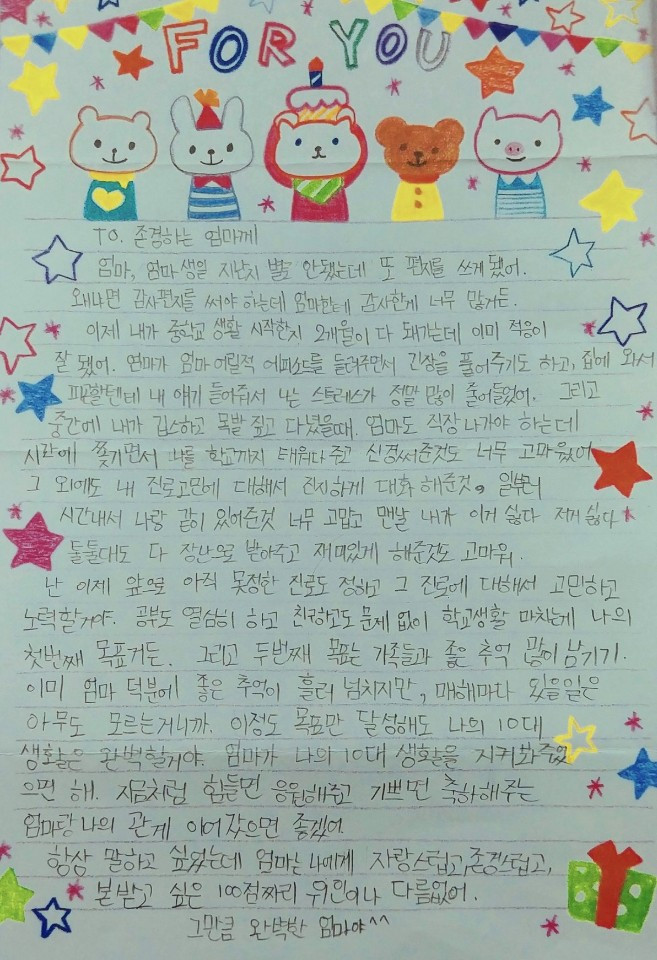 FOR YOU
TO. 존경하는 엄마께
엄마, 엄마 생일 지난지 별로 안됐는데 또 편지를 쓰게 됐어.
왜냐면 감사편지를 써야 하는데 엄마한테 감사한게 너무 많거든.
이제 내가 중학교 생활 시작한지 2개월이 다 돼가는데 이미 적응이
잘 됐어. 엄마가 엄마 어릴적 에피소드를 들려주면서 긴장을 풀어주기도 하고, 집에 와서
피곤할텐데 내 얘기 들어줘서 나는 스트레스가 정말 많이 줄어들었어. 그리고
중간에 내가 깁스하고 목발 짚고 다녔을때, 엄마도 직장 나가야 하는데
시간에 쫓기면서 나를 학교까지 태워다 주고 신경써준것도 너무 고마웠어
그 외에도 내 진로고민에 대해서 진지하게 대화 해준것, 일부러
시간내서 나랑 같이 있어준것 너무 고맙고 맨날 내가 이거 싫다 저거 싫다
툴툴대도 다 장난으로 받아주고 재미있게 해준것도 고마워.
난 이제 앞으로 아직 못정한 진로도 정하고 그 진로에 대해서 고민하고
노력할거야. 공부도 열심히 하고 친구하고도 문제 없이 학교생활 마치는게 나의
첫번째 목표거든. 그리고 두번째 목표는 가족들과 좋은 추억 많이 남기기.
이미 엄마 덕분에 좋은 추억이 흘러 넘치지만, 매해마다 있을일은
아무도 모르는거니까. 이정도 목표만 달성해도 나의 10대
생활은 완벽할거야. 엄마가 나의 10대 생활을 지켜봐주었
으면 해. 지금처럼 힘들면 응원해주고 기쁘면 축하해주는
엄마랑 나의 관계 이어갔으면 좋겠어.
항상 말하고 싶었는데 엄마는 나에게 자랑스럽고, 존경스럽고,
본받고 싶은 100점짜리 위인이나 다름없어.
그만큼 완벽한 엄마야^^